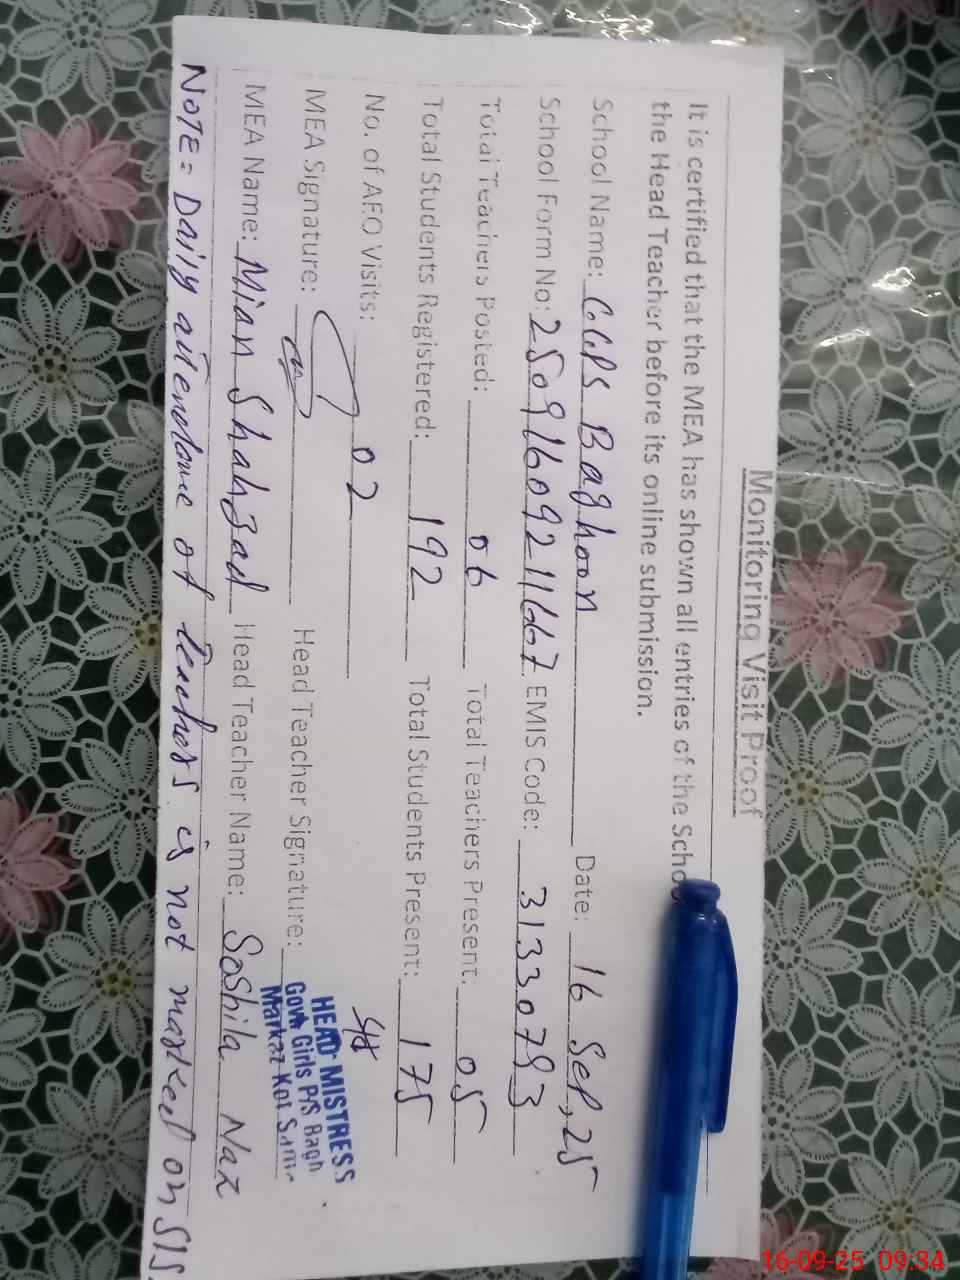 Monitoring Visit Proof
It is certified that the MEA has shown all entries of the Schoo
the Head Teacher before its online submission.
School Name: GGPS Baghoon Date: 16 Sep, 25
School Form No: 25091609211667 EMIS Code: 31330793
Total Teachers Posted: 06 Total Teachers Present: 05
Total Students Registered: 192 Total Students Present: 175
No. of AEO Visits: 02
MEA Signature: Head Teacher Signature:
HEAD MISTRESS
Govt Girls P/S Bagh
Markaz Kot Sama
MEA Name: Mian Shahzad Head Teacher Name: Sashila Naz
NOTE= Daily attendance of teachers is not marked on SIS.
16-09-25 09:34